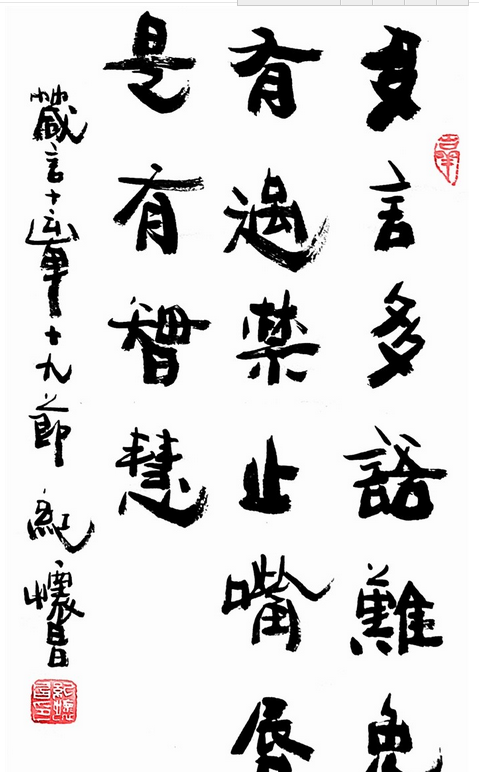 多言多語難免
有過禁止嘴唇
是有智慧
箴言十章十九節